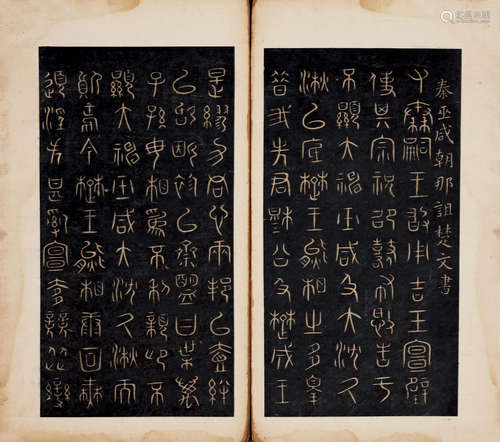 秦巫咸朝那詛楚文書
又秦嗣王敢用吉玉宣璧
使其宗祝邵鼛布憝告于
不顯大神巫咸及大沈久
湫以底楚王熊相之多辠
昔我先君穆公及楚成王
是繆力同心兩邦以壹絆
以婚姻袗以齊盟曰枼萬
子孫毋相為不利親卬不
顯大神巫咸大沈久湫而
質焉今楚王熊相康回無
道淫失甚亂宣奓競從變